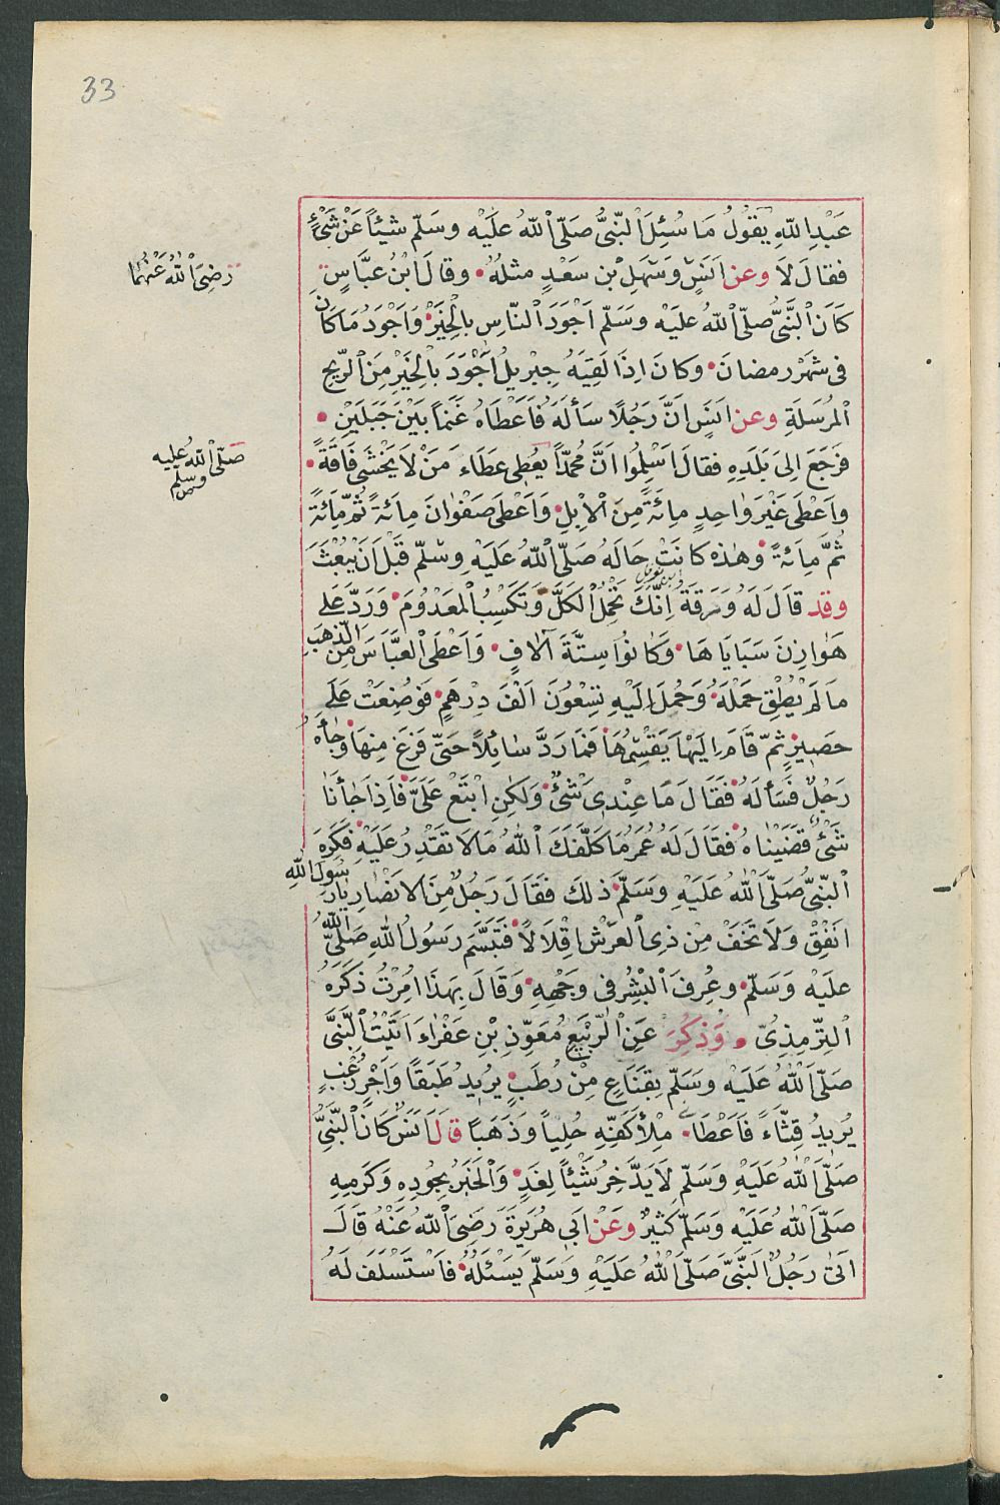 33
عَبْدِ اللّٰهِ يَقُولُ مَا سُئِلَ النَّبِىُّ صَلَّى اللّٰهُ عَلَيْه وسَلّم شيْئًا عَنْ شَىْءٍ
فقالَ لَا وعن اَنَسٍ وَسَهْلِ بْنِ سَعْدٍ مثلهُ • وقالَ ابْنُ عبَّاسٍ
رَضِىَ اللّٰهُ عَنْهُمَا
كَانَ النَّبِىُّ صلّى اللّٰهُ عليْه وَسَلّم اَجْوَدَ النَّاسِ بالْخَيْرِ • وَاَجْوَدُ مَا كَانَ
فى شهْرِ رمضانَ • وكانَ اِذَا لَقِيَهُ جِبْرِيلُ اَجْوَدَ بالْخَيْرِ مِنَ الرّيحِ
الْمُرسَلَةِ وعن انَسٍ اَنَّ رَجُلًا سَاَلَهُ فَاَعْطَاهُ غَنَمًا بَيْنَ جَبَلَيْنِ •
فرَجَعَ اِلىَ بَلَدِهِ فقالَ اَسْلِمُوا اَنَّ مُحمّدًا يُعْطِى عَطَاءَ مَنْ لَا يَخْشَى فَاقَةً •
صَلّى اللّٰهُ عليه
وسلّم
وَاَعْطَى غَيْرَ وَاحِدٍ مِائَةً مِنَ الْاِبِلِ • وَاَعْطَى صَفْوَانَ مِائَةً ثُمَّ مِائَةً
ثُمَّ مِائَةً • وهٰذه كانَتْ حَالَهُ صَلّى اللّٰهُ عَلَيْهِ وسَلّم قَبْلَ اَنْ يُبْعَثَ
وقد قالَ لَهُ وَرَقَةُ اِنَّكَ تَحْمِلُ الْكَلَّ وَتَكْسِبُ الْمعْدُومَ • وَرَدَّ عَلى
هَوَازِنَ سَبَايَاهَا • وَكَانُوا سِتَّةَ آلَافٍ • وَاَعْطَى الْعبَّاسَ مِنَ الذّهَبِ
مالَمْ يُطِقْ حَمْلَهُ • وَحُمِلَ اِلَيْهِ تِسْعُونَ اَلْفَ دِرْهَمٍ • فَوُضِعَتْ عَلَى
حَصِيرٍ ثمّ قَامَ اِلَيْهَا يَقْسِمُهَا • فَمَا رَدَّ سَائِلًا حَتّى فَرَغَ مِنهَا • وَجَاءهُ
رَجُلٌ فَسَأَلَهُ • فقَالَ مَا عِنْدِى شَىْءٌ • وَلٰكِنِ ابْتَعْ عَلَىَّ • فَاِذَا جَاءَنَا
شَىْءٌ قَضَيْنَاهُ • فقَالَ لَهُ عُمَرُ مَا كَلَّفَكَ اللّٰهُ مَالَا تَقْدِرُ عَلَيْهِ • فَكَرِهَ
النَّبِىُّ صَلّى اللّٰهُ عَلَيْهِ وَسَلّمَ • ذٰلِكَ فقَالَ رَجُلٌ مِنَ الانْصَارِ يَارَسُولَ اللّٰهِ
اَنْفِقْ وَلَا تَخَفْ مِنْ ذِى الْعَرْشِ اِقْلَالًا • فَتَبَسَّمَ رَسُولُ اللّٰهِ صَلّى اللّٰهُ
عليْه وَسَلّم • وعُرِفَ الْبِشْرُ فى وَجْهِهِ • وَقَالَ بِهَذَا اُمِرْتُ ذَكَرَهُ
التِّرْمِذِىّ • وَذُكِرَ عَنِ الرُّبَيّعِ مُعَوِّذِ بْنِ عَفْرَاءَ اَتَيْتُ النَّبِىَّ
صَلّى اللّٰهُ عَلَيْه وسَلّم بِقِنَاعٍ مِنْ رُطَبٍ • يُرِيدُ طَبَقًا وَاَجْرٍ زُغْبٍ
يُرِيدُ قِثَّاءً فَاَعْطَانِى • مِلْأَ كَفِّهِ حُلِيًّا وَذَهَبًا قالَ اَنَسٌ كَانَ النَّبِىُّ
صَلّى اللّٰهُ عَلَيْهِ وَسَلّم لَا يَدَّخِرُ شَيْئًا لِغَدٍ • وَالْخَبَرُ بِجُودِهِ وَكَرَمِهِ
صَلّى اللّٰهُ عَلَيْه وَسَلّم كَثِيرٌ وَعَنْ اَبِى هُرَيْرَةَ رَضِىَ اللّٰهُ عَنْهُ قَالَ
اَتَىٰ رَجُلٌ النَّبِىَّ صَلّى اللّٰهُ عَلَيْهِ وَسَلّم يَسْئَلُهُ • فَاسْتَسْلَفَ لَهُ